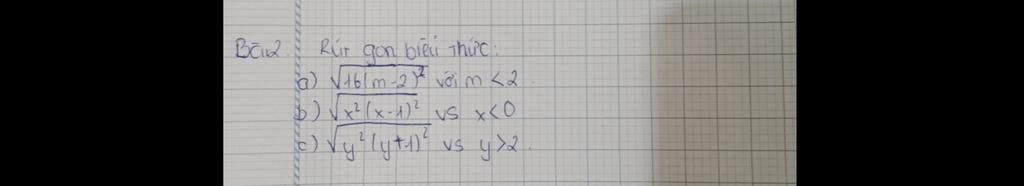 Bài2. Rút gọn biểu thức:
a) √16(m-2)² với m < 2.
b) √x²(x-1)² vs x<0
c) √y²(y+1)² vs y>2.